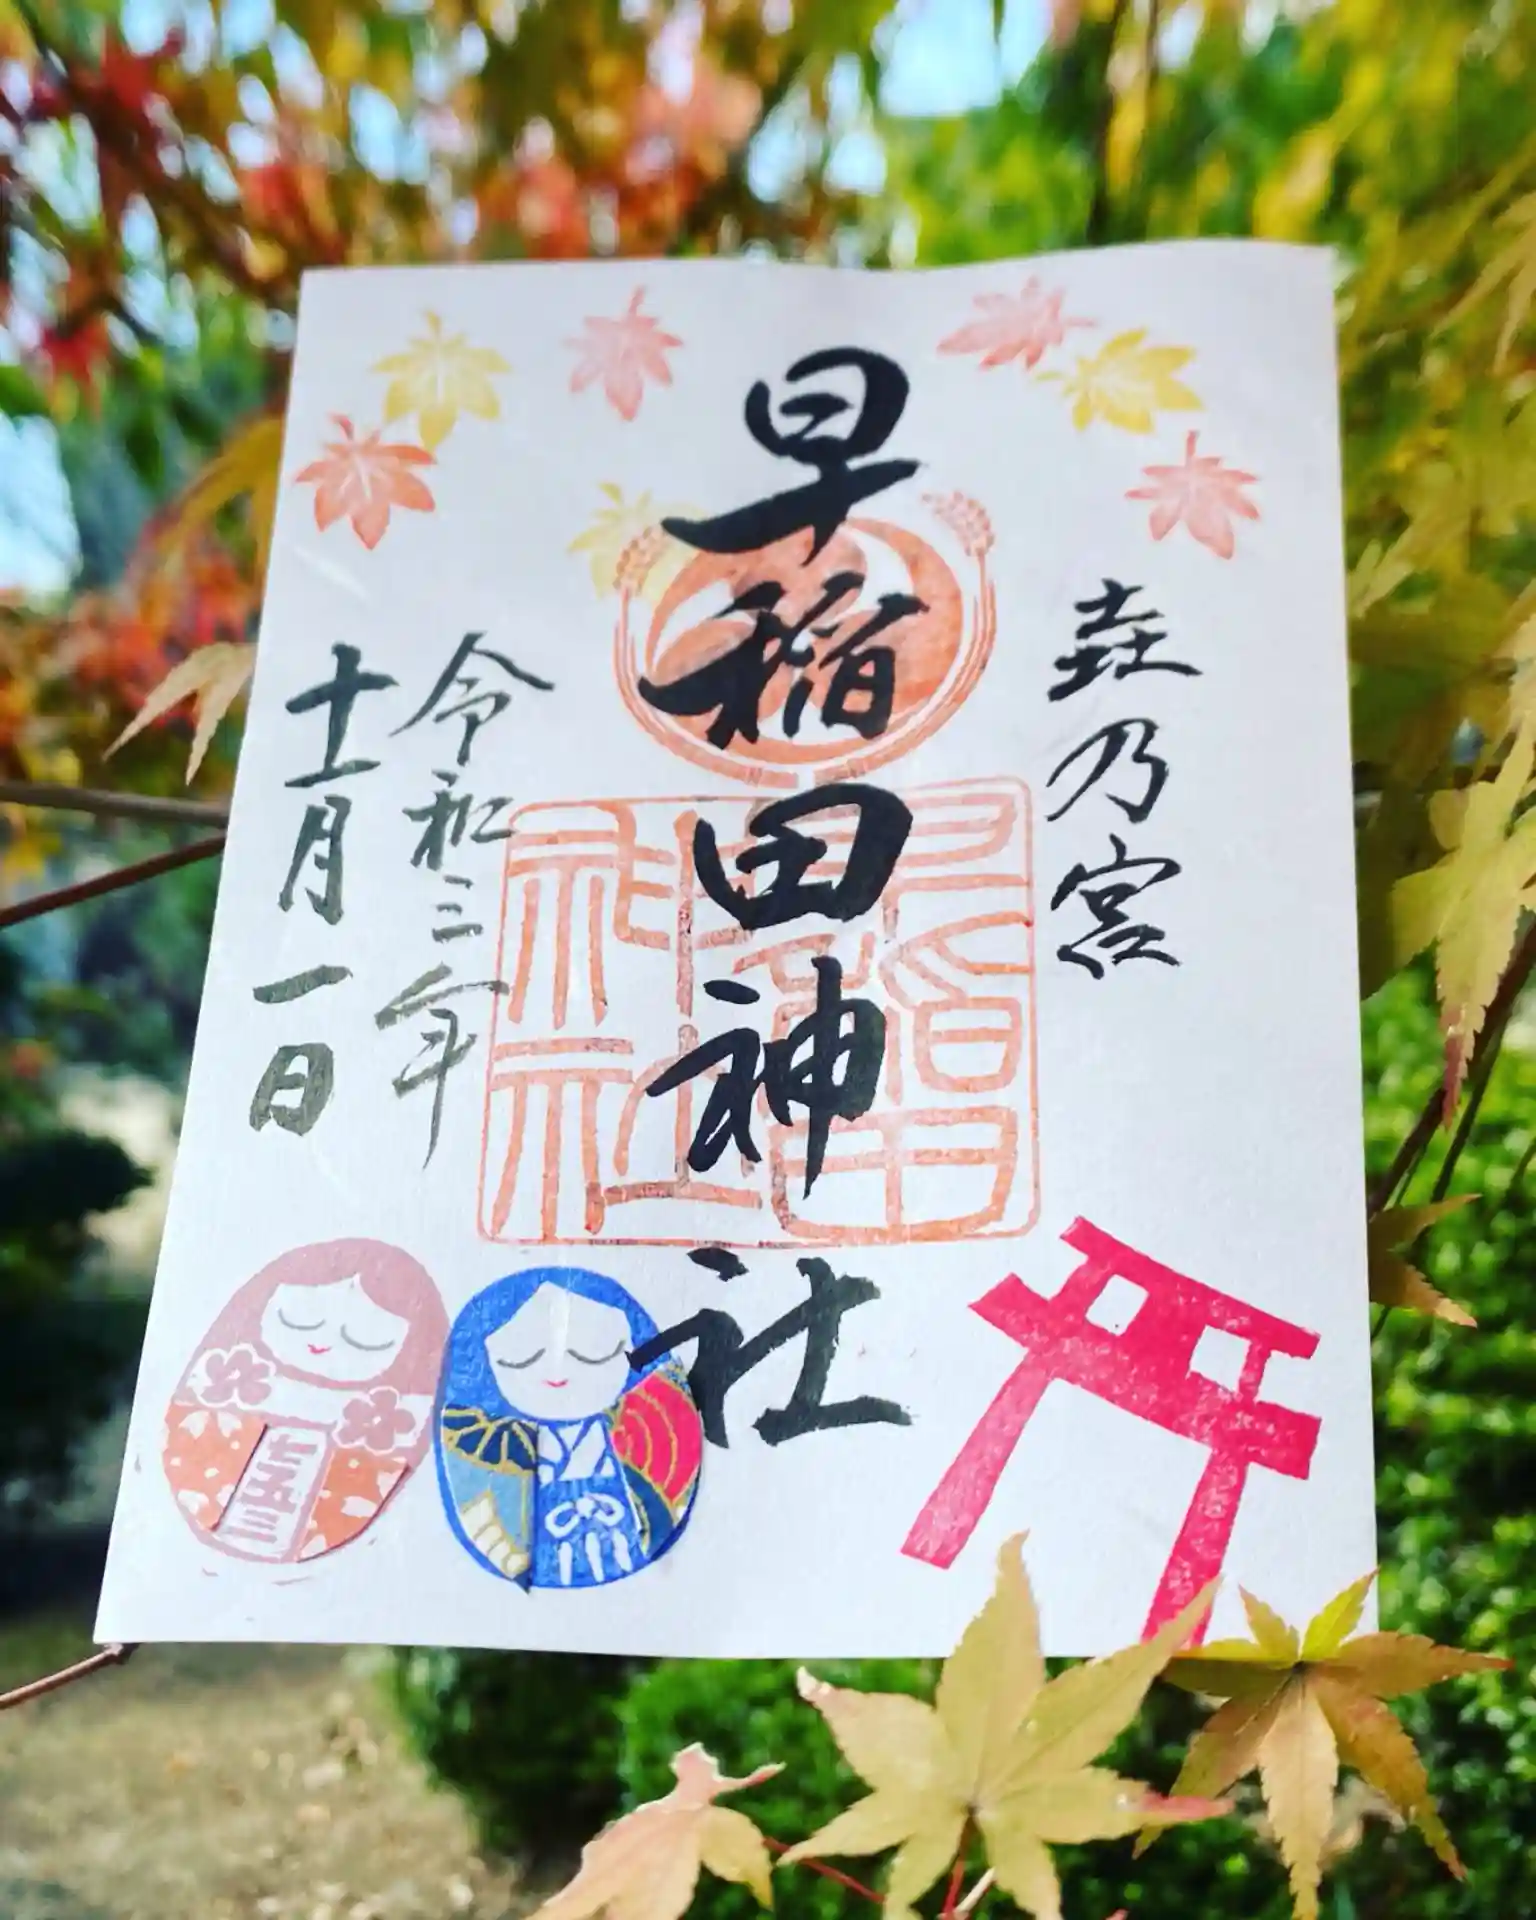 垚乃宮
早稲田神社
早稲田
神社
令和三年
十一月一日
七五三